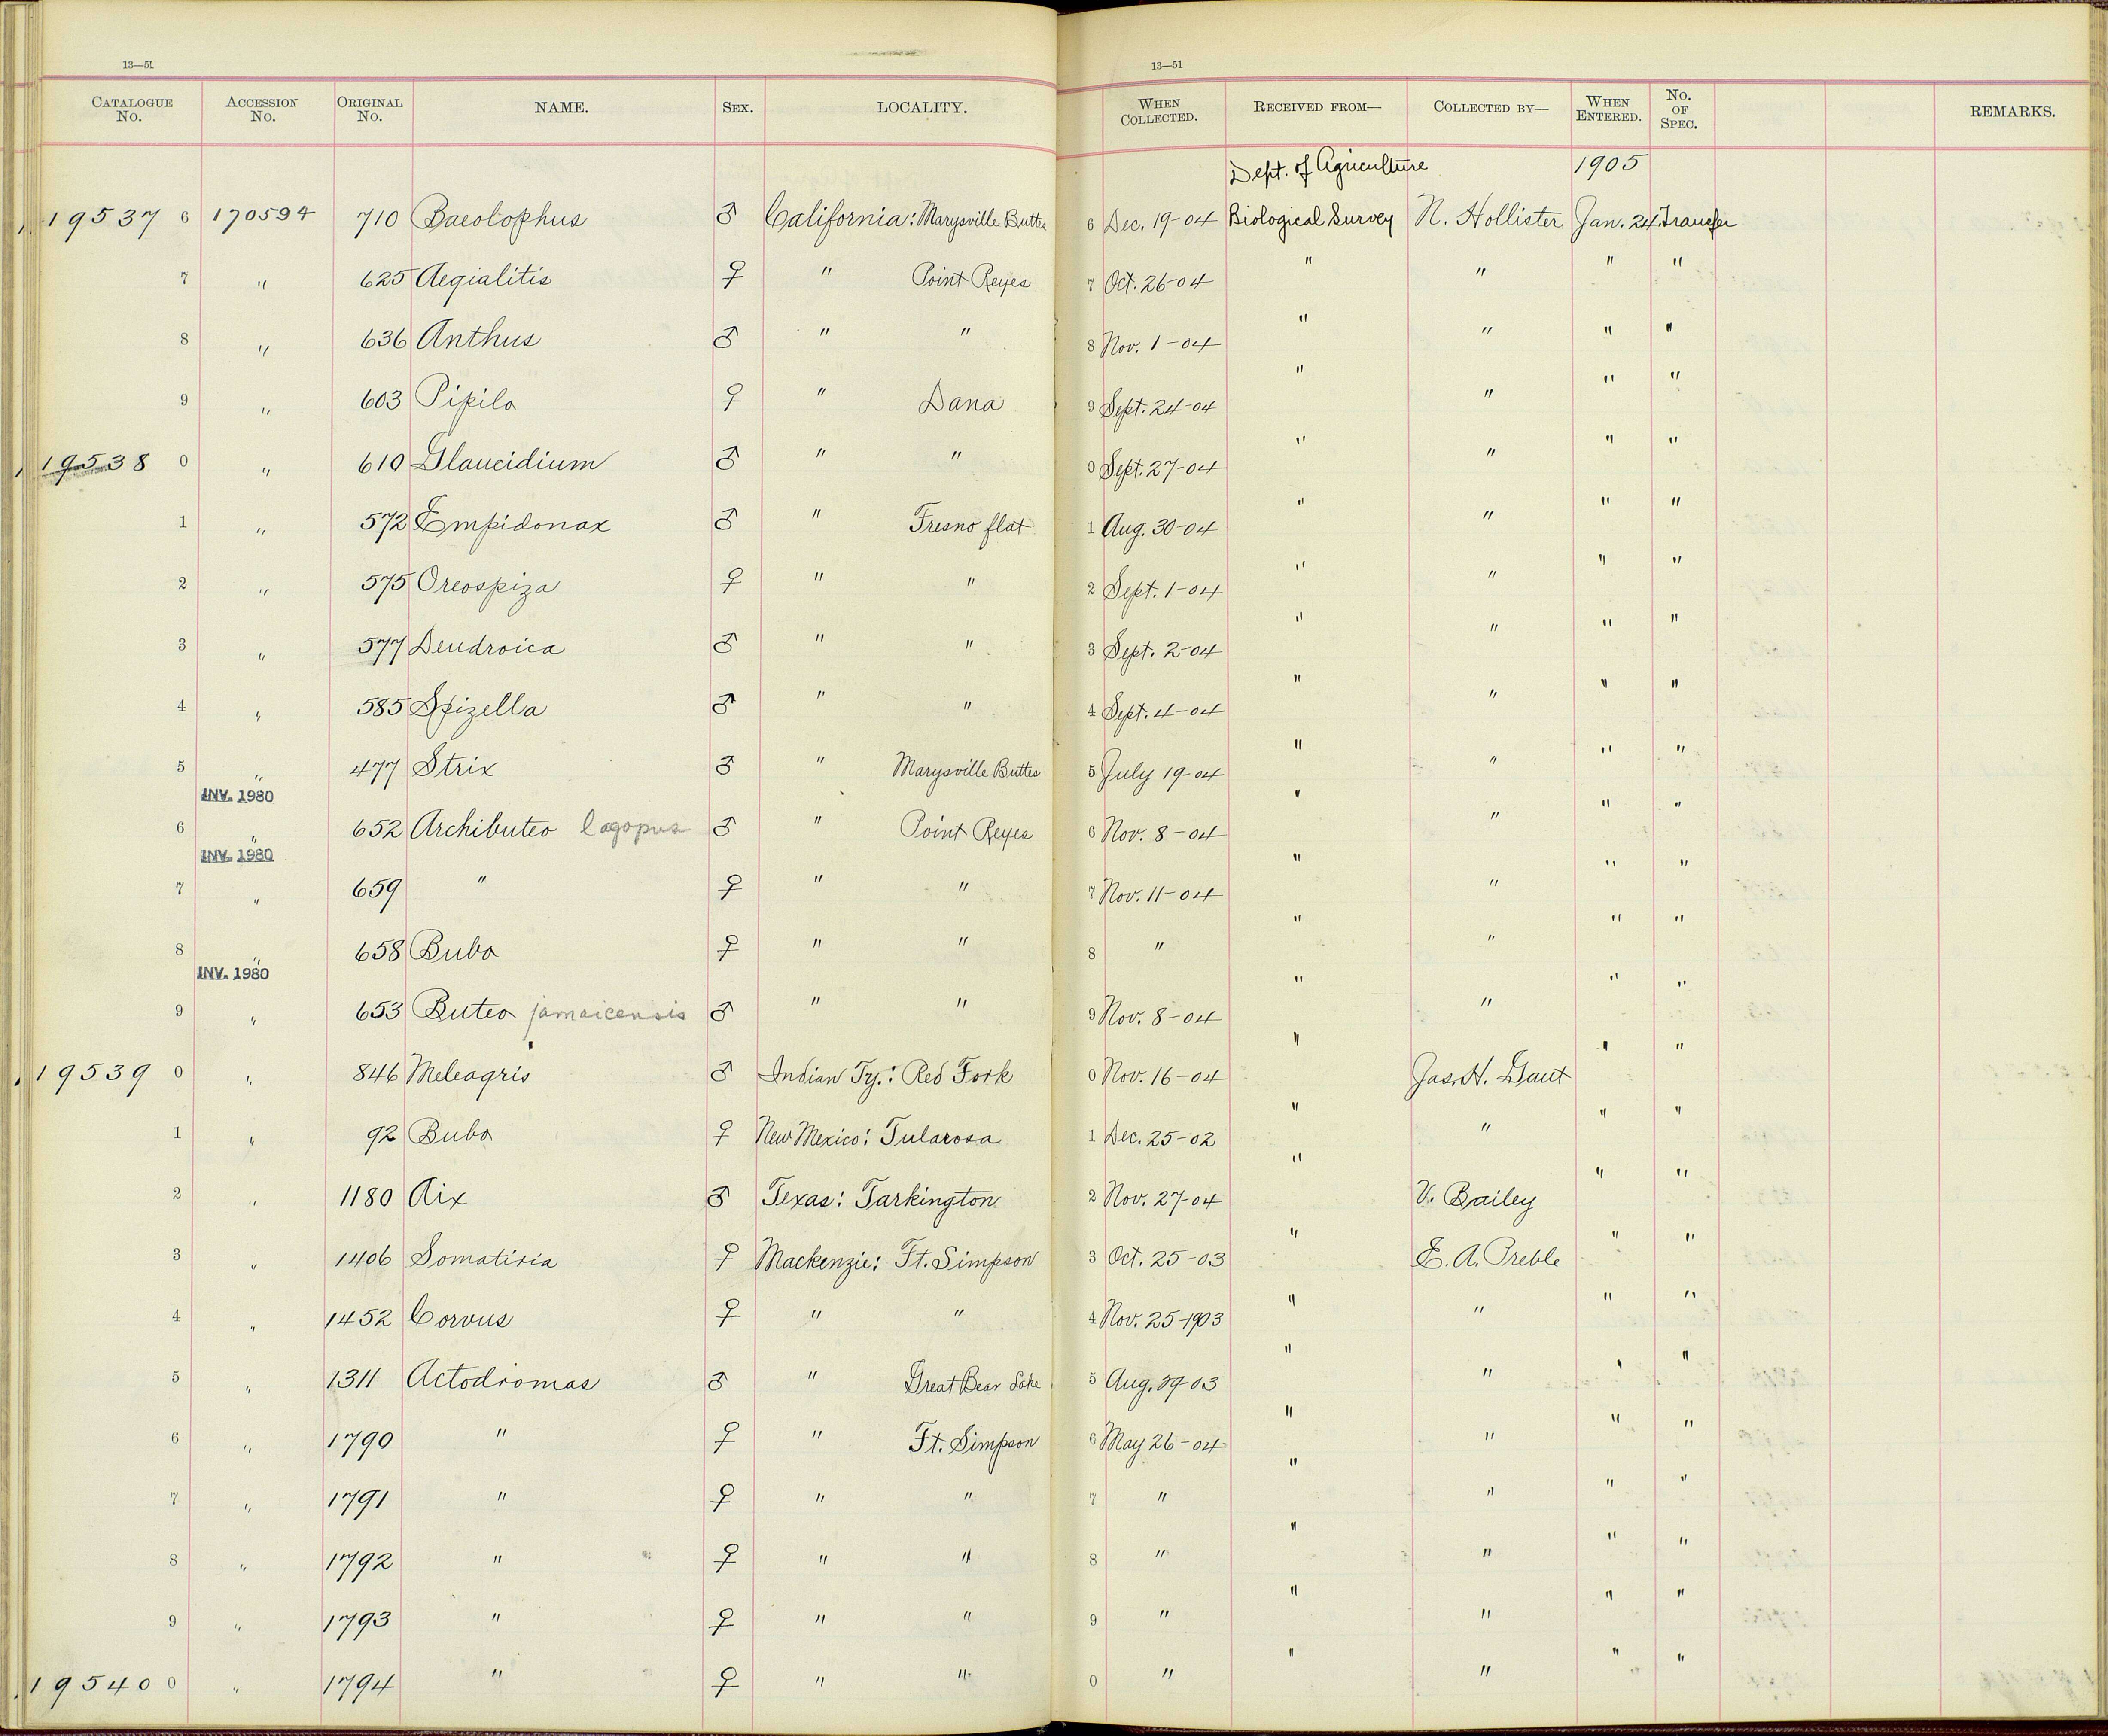 13—51 13—51
CATALOGUE No. ACCESSION No. ORIGINAL No. NAME. SEX. LOCALITY. WHEN COLLECTED. RECEIVED FROM— COLLECTED BY— WHEN ENTERED. No. OF SPEC. REMARKS.
Dept. of Agriculture 1905
19537 6 170594 710 Baeolophus ♂ California: Marysville Buttes 6 Dec. 19-04 Biological Survey N. Hollister Jan. 24 Transfer
7 " 625 Aegialitis ♀ " Point Reyes 7 Oct. 26-04 " " " "
8 " 636 Anthus ♂ " " 8 Nov. 1-04 " " " "
9 " 603 Pipilo ♀ " Dana 9 Sept. 24-04 " " " "
19538 0 " 610 Glaucidium ♂ " " 0 Sept. 27-04 " " " "
1 " 572 Empidonax ♂ " Fresno flat 1 Aug. 30-04 " " " "
2 " 575 Oreospiza ♀ " " 2 Sept. 1-04 " " " "
3 " 577 Dendroica ♂ " " 3 Sept. 2-04 " " " "
4 " 585 Spizella ♂ " " 4 Sept. 4-04 " " " "
5 " 477 Strix ♂ " Marysville Buttes 5 July 19-04 " " " "
INV. 1980
6 " 652 Archibuteo lagopus ♂ " Point Reyes 6 Nov. 8-04 " " " "
INV. 1980
7 " 659 " ♀ " " 7 Nov. 11-04 " " " "
8 " 658 Bubo ♀ " " 8 " " " " "
INV. 1980
9 " 653 Buteo jamaicensis ♂ " " 9 Nov. 8-04 " " " "
19539 0 " 846 Meleagris ♂ Indian Ty.: Red Fork 0 Nov. 16-04 " Jas. H. Gaut " "
1 " 92 Bubo ♀ New Mexico: Tularosa 1 Dec. 25-02 " " " "
2 " 1180 Aix ♂ Texas: Tarkington 2 Nov. 27-04 " V. Bailey " "
3 " 1406 Somatiria ♀ Mackenzie: Ft. Simpson 3 Oct. 25-03 " E. A. Preble " "
4 " 1452 Corvus ♀ " " 4 Nov. 25-1903 " " " "
5 " 1311 Actodromas ♂ " Great Bear Lake 5 Aug. 29-03 " " " "
6 " 1790 " ♀ " Ft. Simpson 6 May 26-04 " " " "
7 " 1791 " ♀ " " 7 " " " " "
8 " 1792 " ♀ " " 8 " " " " "
9 " 1793 " ♀ " " 9 " " " " "
19540 0 " 1794 " ♀ " " 0 " " " " "